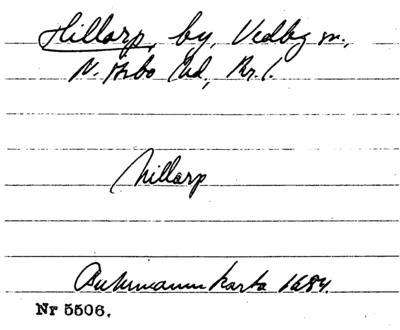 Hillarp, by, Vedby sn.,
N. Åsbo hd, Kr. l.
Hillarp
Buhrmanns karta 1684.
Nr 5506.